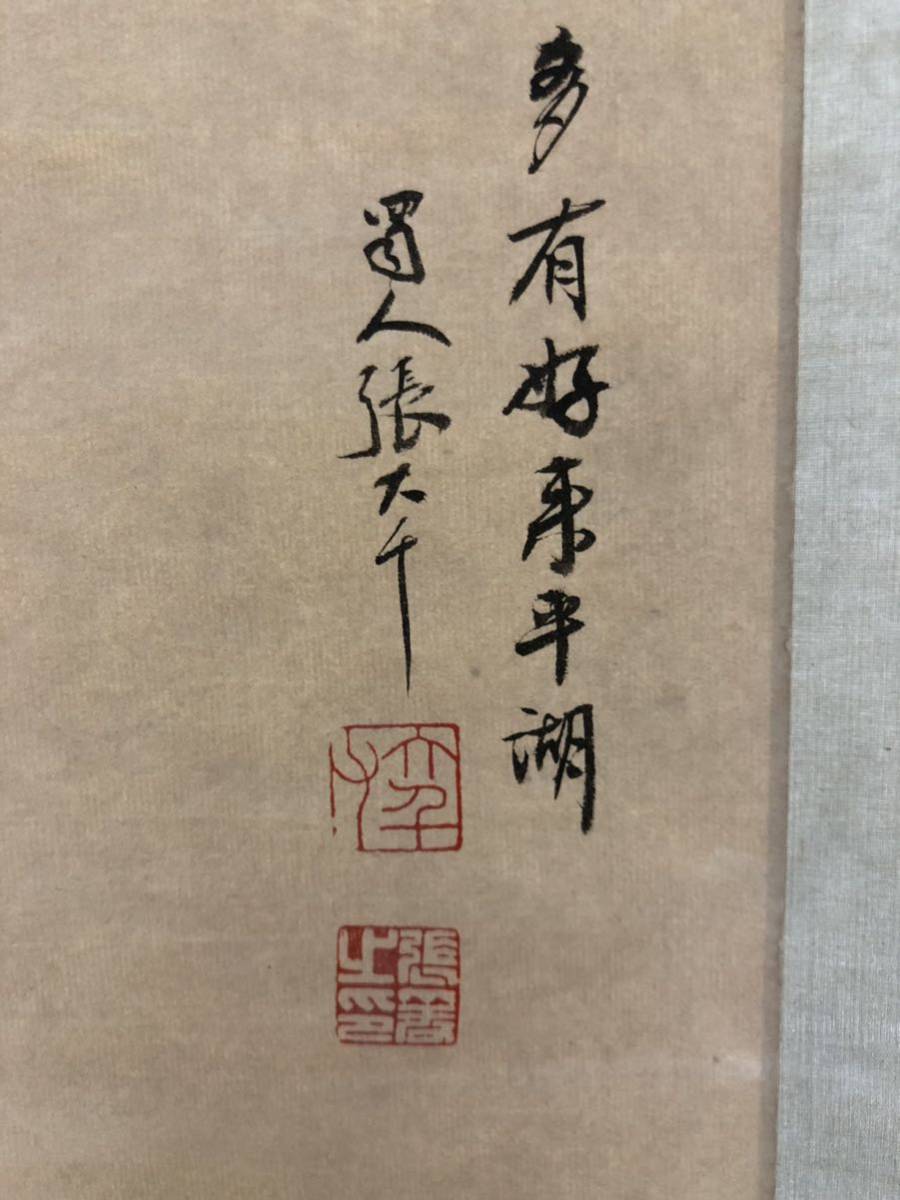 多有好来平湖
蜀人張大千
張爰
之印